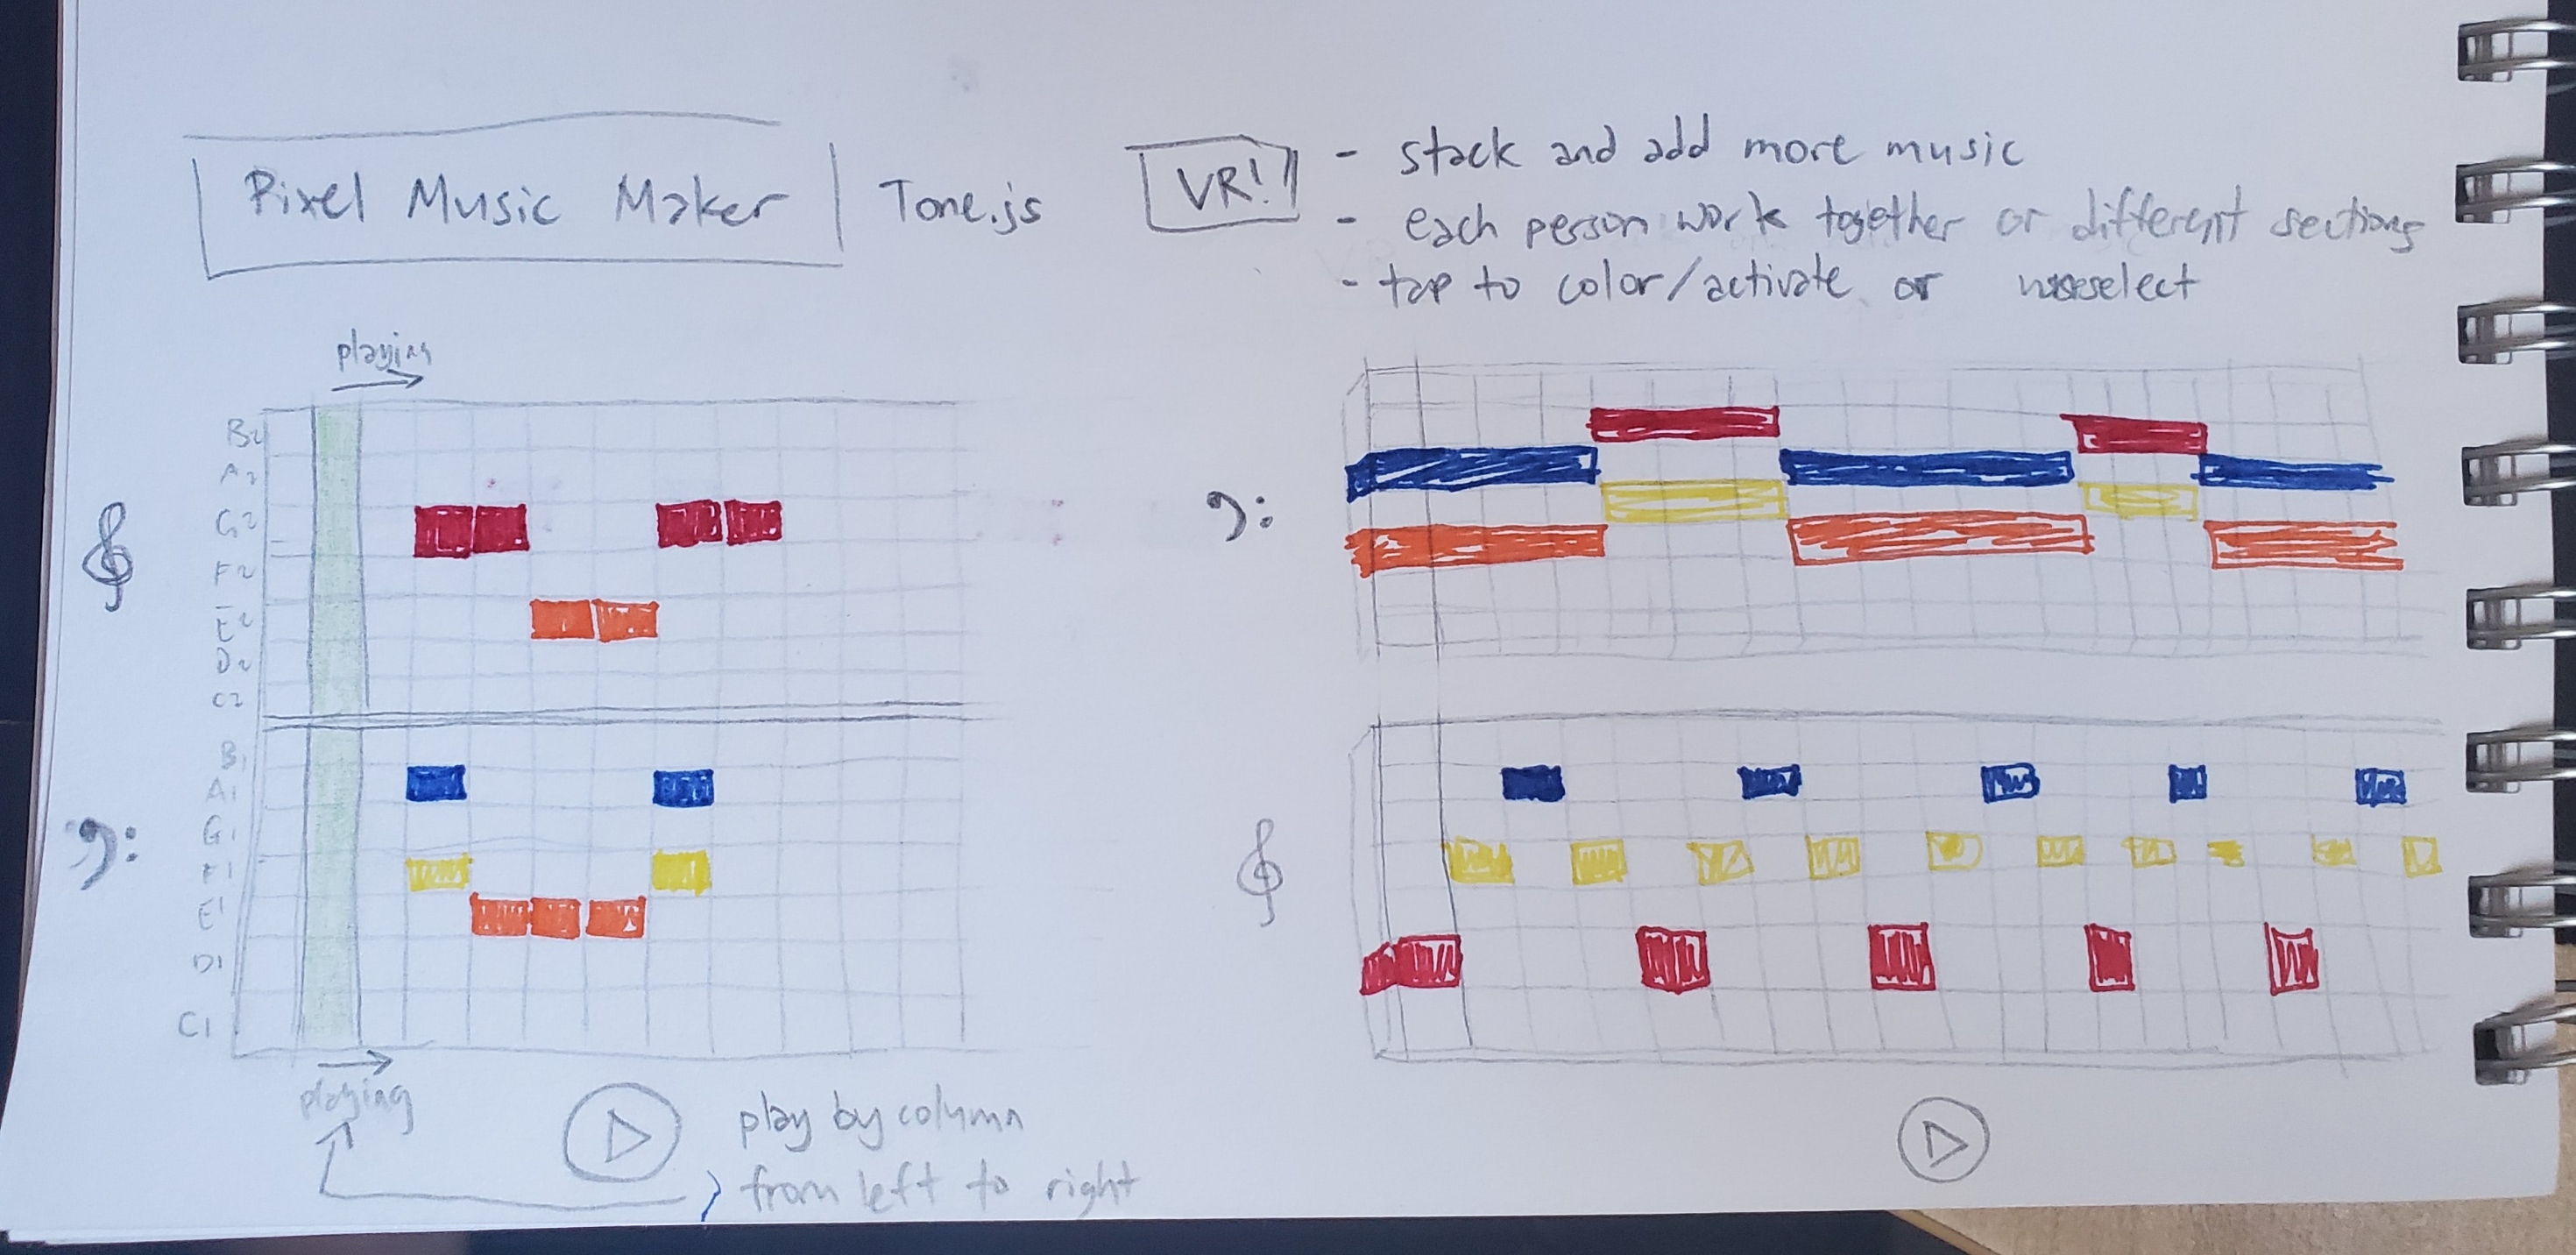 Pixel Music Maker
Tone.js
VR!
- stack and add more music
- each person work together or different sections
- tap to color/activate or select
playing
B2
A2
G2
F2
E2
D2
C2
B1
A1
G1
F1
E1
D1
C1
playing
play by column
from left to right